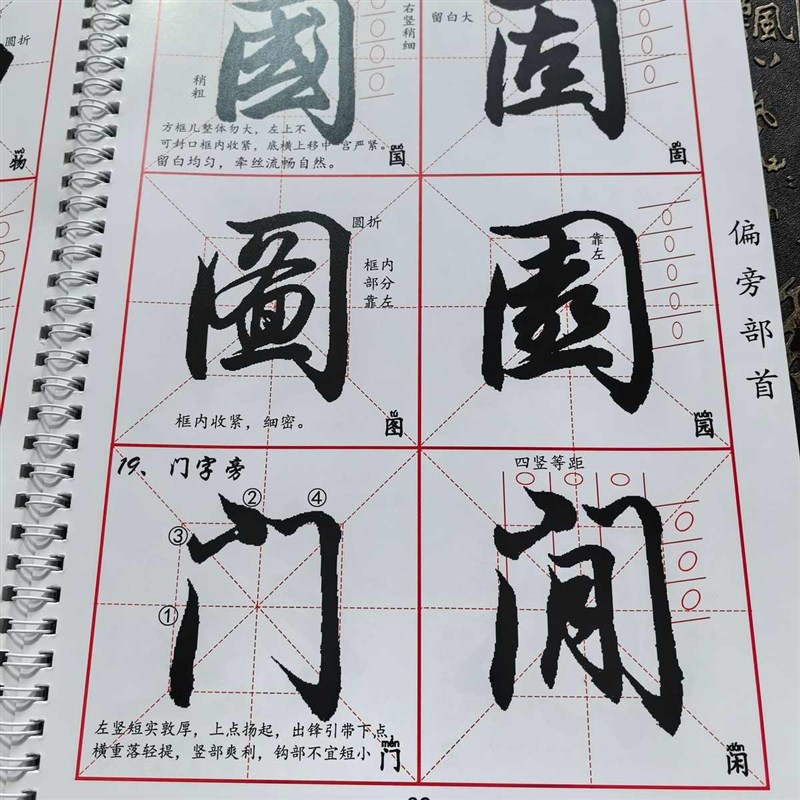 圆折
物
國
稍粗
右竖稍细
方框儿整体勿大，左上不
可封口框内收紧，底横上移中宫严紧。
留白均匀，牵丝流畅自然。
guó
国
留白大
固
gù
固
圖
圆折
框内
部分
靠左
框内收紧，细密。
tú
图
園
靠左
yuán
园
偏旁部首
19、门字旁
② ④
③
①
门
左竖短实敦厚，上点扬起，出锋引带下点，
横重落轻提，竖部爽利，钩部不宜短小
mén
门
四竖等距
闲
xián
闲